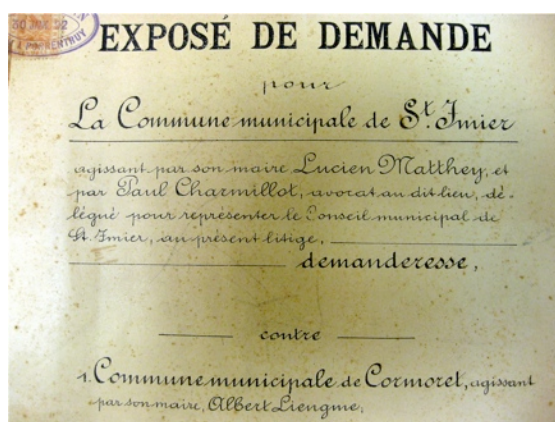 30 92
PORRENTRUY
EXPOSÉ DE DEMANDE
pour
La Commune municipale de St. Imier
agissant par son maire Lucien Matthey, et
par Paul Charmillot, avocat au dit lieu, dé-
légué pour représenter le Conseil municipal de
St. Imier, au présent litige,
demanderesse,
contre
1. Commune municipale de Cormoret, agissant
par son maire, Albert Liengme,